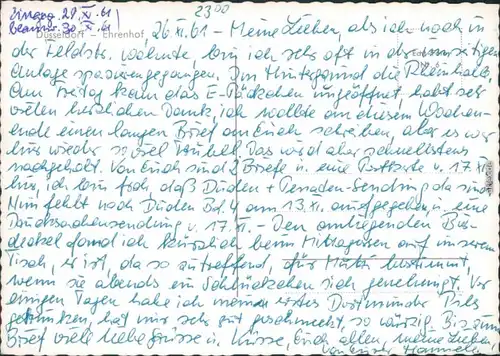 2300
Eingeg. 29. XI. 61
beantw. 30. XI. 61
Düsseldorf Ehrenhof
26. XI. 61 - Meine Lieben, als ich noch in
der Feldstr. wohnte, bin ich sehr oft in der umseitigen
Anlage spazierengegangen. Im Hintergrund die Rheinhalle.
Am Freitag kam das E-Päckchen ungeöffnet, habt sehr
vielen herzlichen Dank, ich wollte an diesem Wochen-
ende einen langen Brief an Euch schreiben, aber es war
hier wieder so viel Trubel. Das wird aber schnellstens
nachgeholt. Von Euch sind 2 Briefe u. eine Postkarte v. 17. XI.
hier, ich bin froh, daß Duden + Sendung da sind
Nun fehlt noch Duden Bd. 4 am 13. XI. aufgegeben u. eine
Drucksachensendung v. 17. XI. - Den anliegenden Bier-
deckel fand ich kürzlich beim Mittagessen auf unserem
Tisch, er ist, da so zutreffend, für Mutti bestimmt,
wenn sie abends ein Schlückchen sich genehmigt. Vor
einigen Tagen habe ich mein erstes Dortmunder Pils
getrunken, hat mir sehr gut geschmeckt, so würzig. Bis zum
Brief viele liebe Grüsse u. Küsse, Euch allen, meine Lieben
von Eurer Hannele